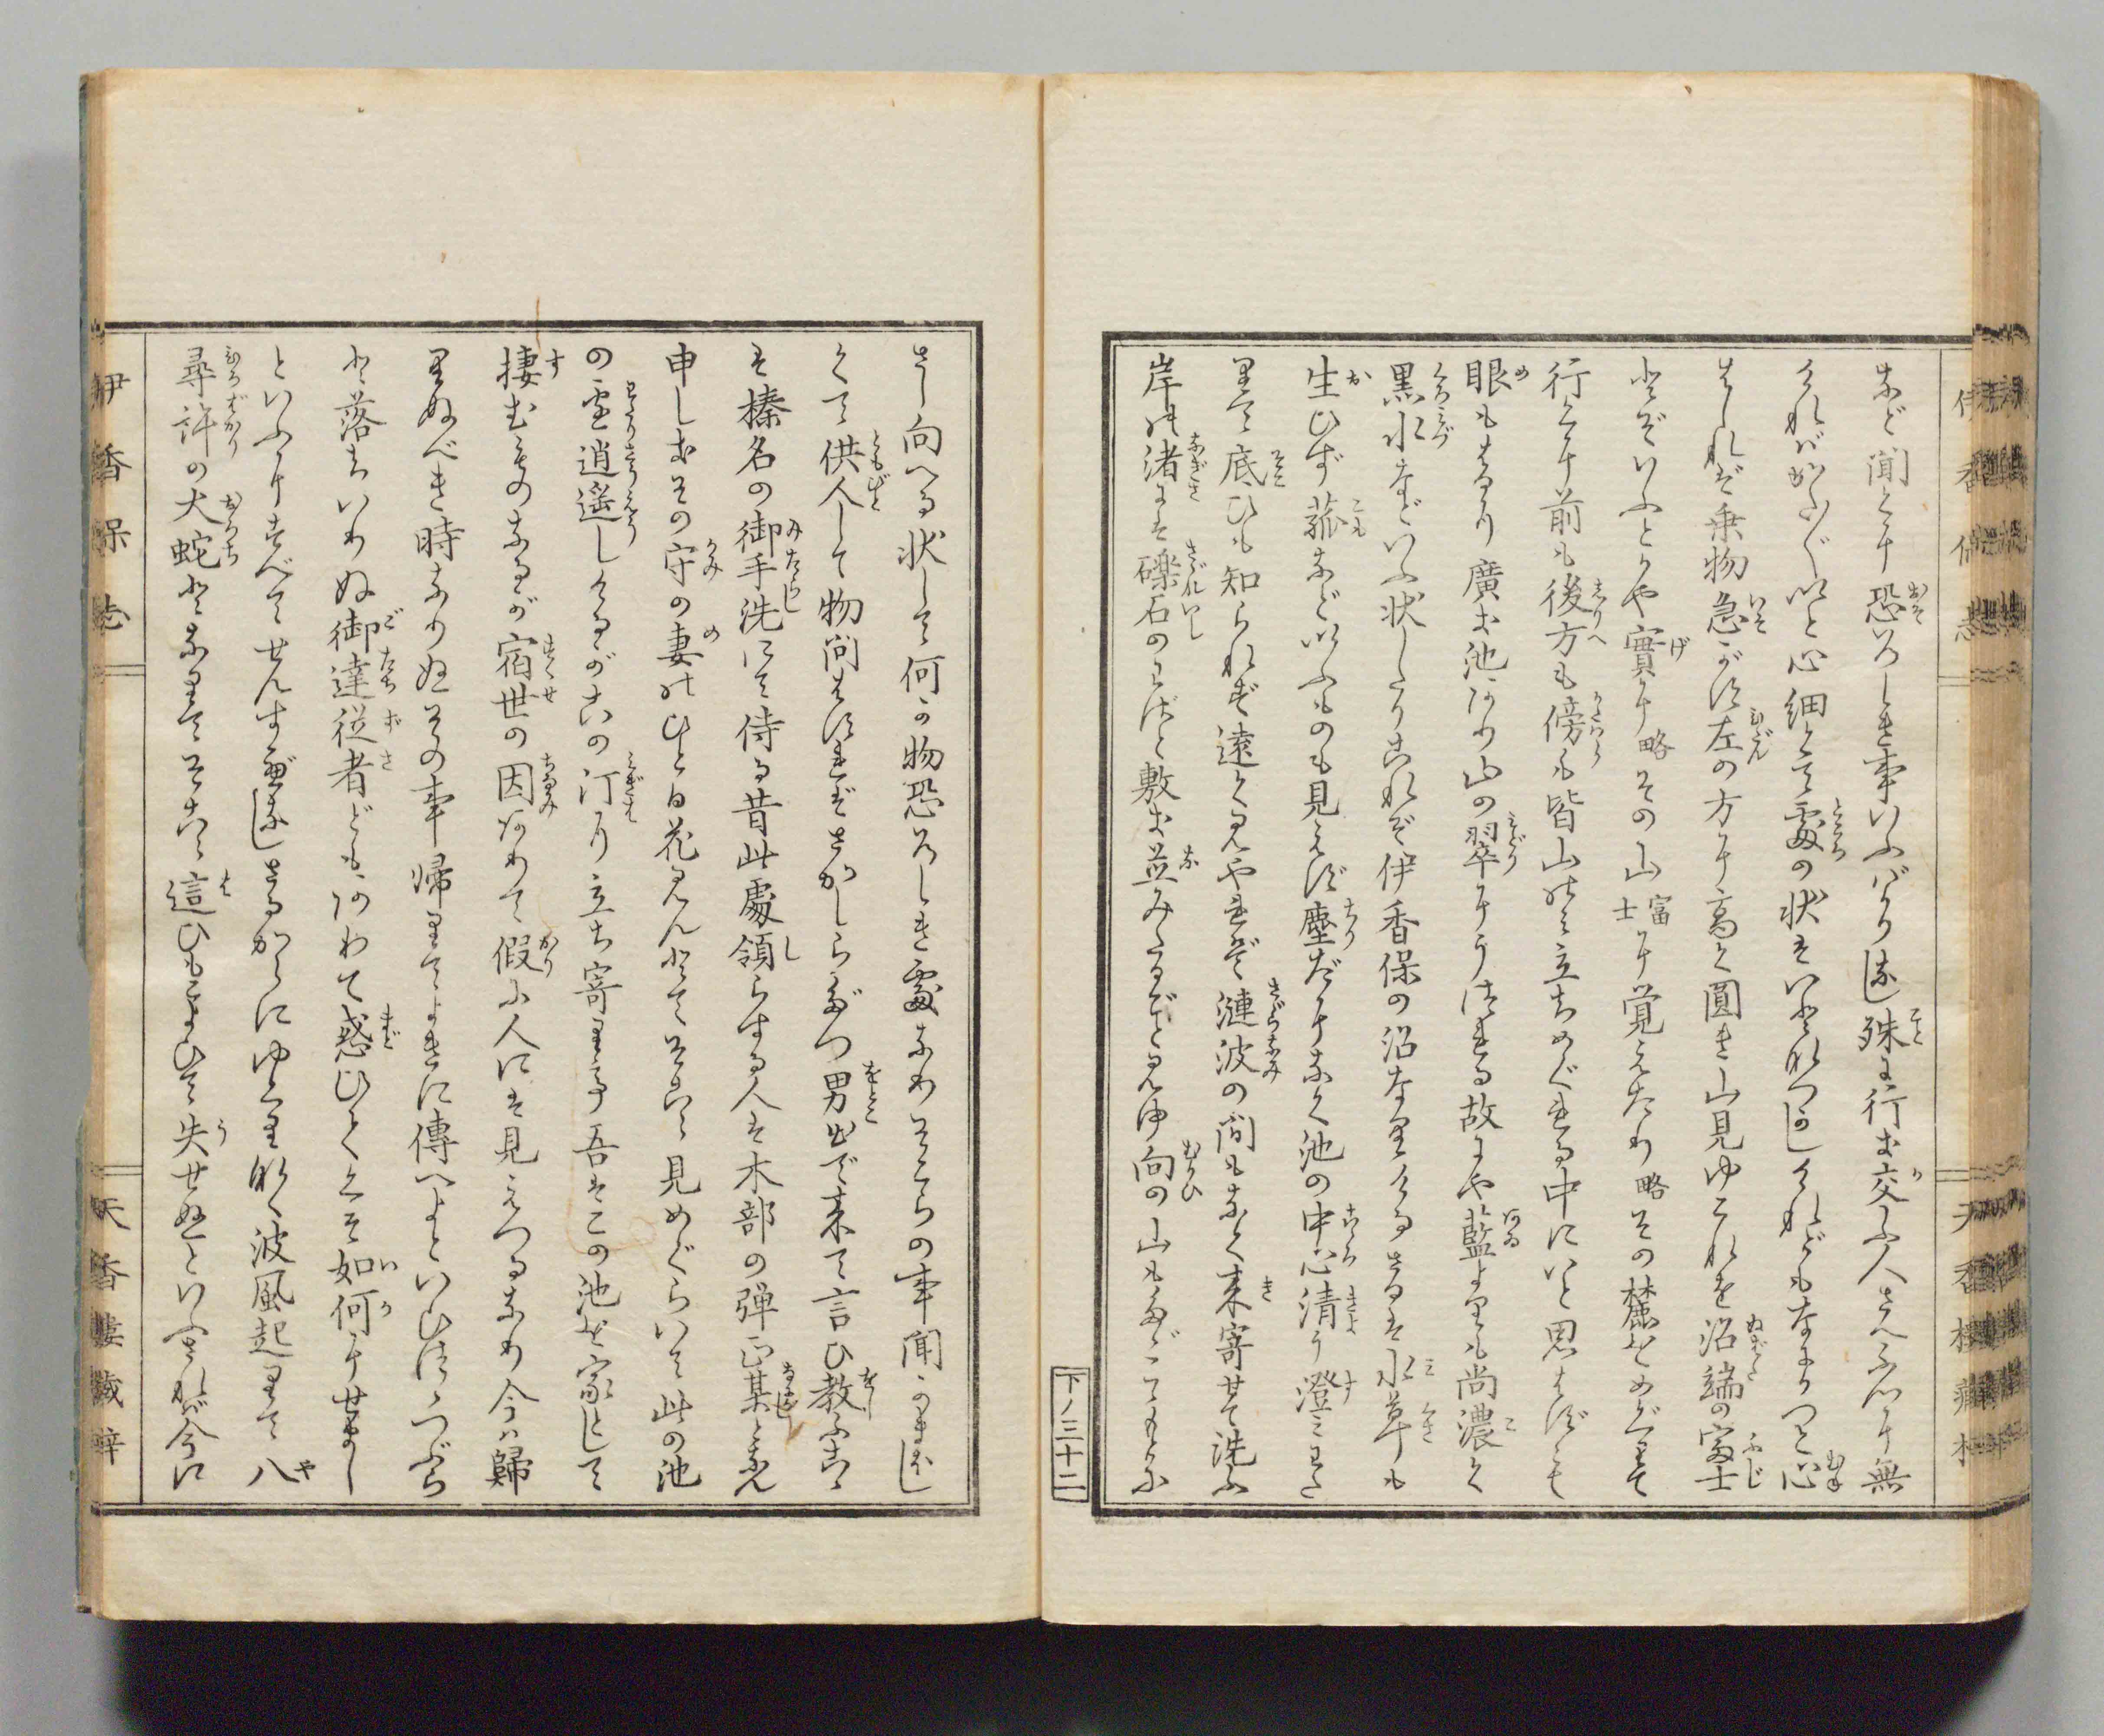 など聞くに恐ろしき事いふばかりなし殊に行き交ふ人さへふつに無
ければかたがたいと心細くて處の状はいとなつかしけれどもなかつと心
はしれど乗物急がす左の方に高く圓き山見ゆこれを沼端の富士
とぞいふとかや實に略その山富士に覚えたり略その麓をめぐりて
行くに前も後方も傍も皆山のみ立ちめぐれる中にいと思はずも
眼もはるに廣き池あり山の翠にうつれる故にや藍よりも尚濃く
黒水などいふ状したりこれぞ伊香保の沼なりけるさるは水草も
生ひず菰などいふものも見えず塵だになく池の中心清う澄みわた
りて底ひも知られず遠く見やれば漣波の間もなく来寄せて洗ふ
岸の渚には礫石のみぞ敷き並みたるぞと見ゆ向の山も
下ノ三十二
さし向へる状して何か物恐ろしき處なりそこらの事聞かまほし
くて供人して物問はすればさかしらだつ男出で来て言ひ教ふこは
是榛名の御手洗にて侍る昔此處領らする人は木部の弾正某となん
申しきその守の妻のひと日花見んとてそこら見めぐらいて此の池
の辺逍遥しけるがこの汀に立ち寄りて吾はこの池を家にして
棲むものなるが宿世の因ありて假に人には見えつるなり今は歸
りぬべき時なりぬその事帰りてよきに傳へよといひはてつぶら
と落ちいりぬ御達従者どもあわて惑ひてこは如何にせまし
といふにすべてせんすべなしさるからにゆくりなく波風起りて八
尋許の大蛇となりてそこら這ひもこよひて失せぬといふされば今に
伊香保志
天香樓蔵梓